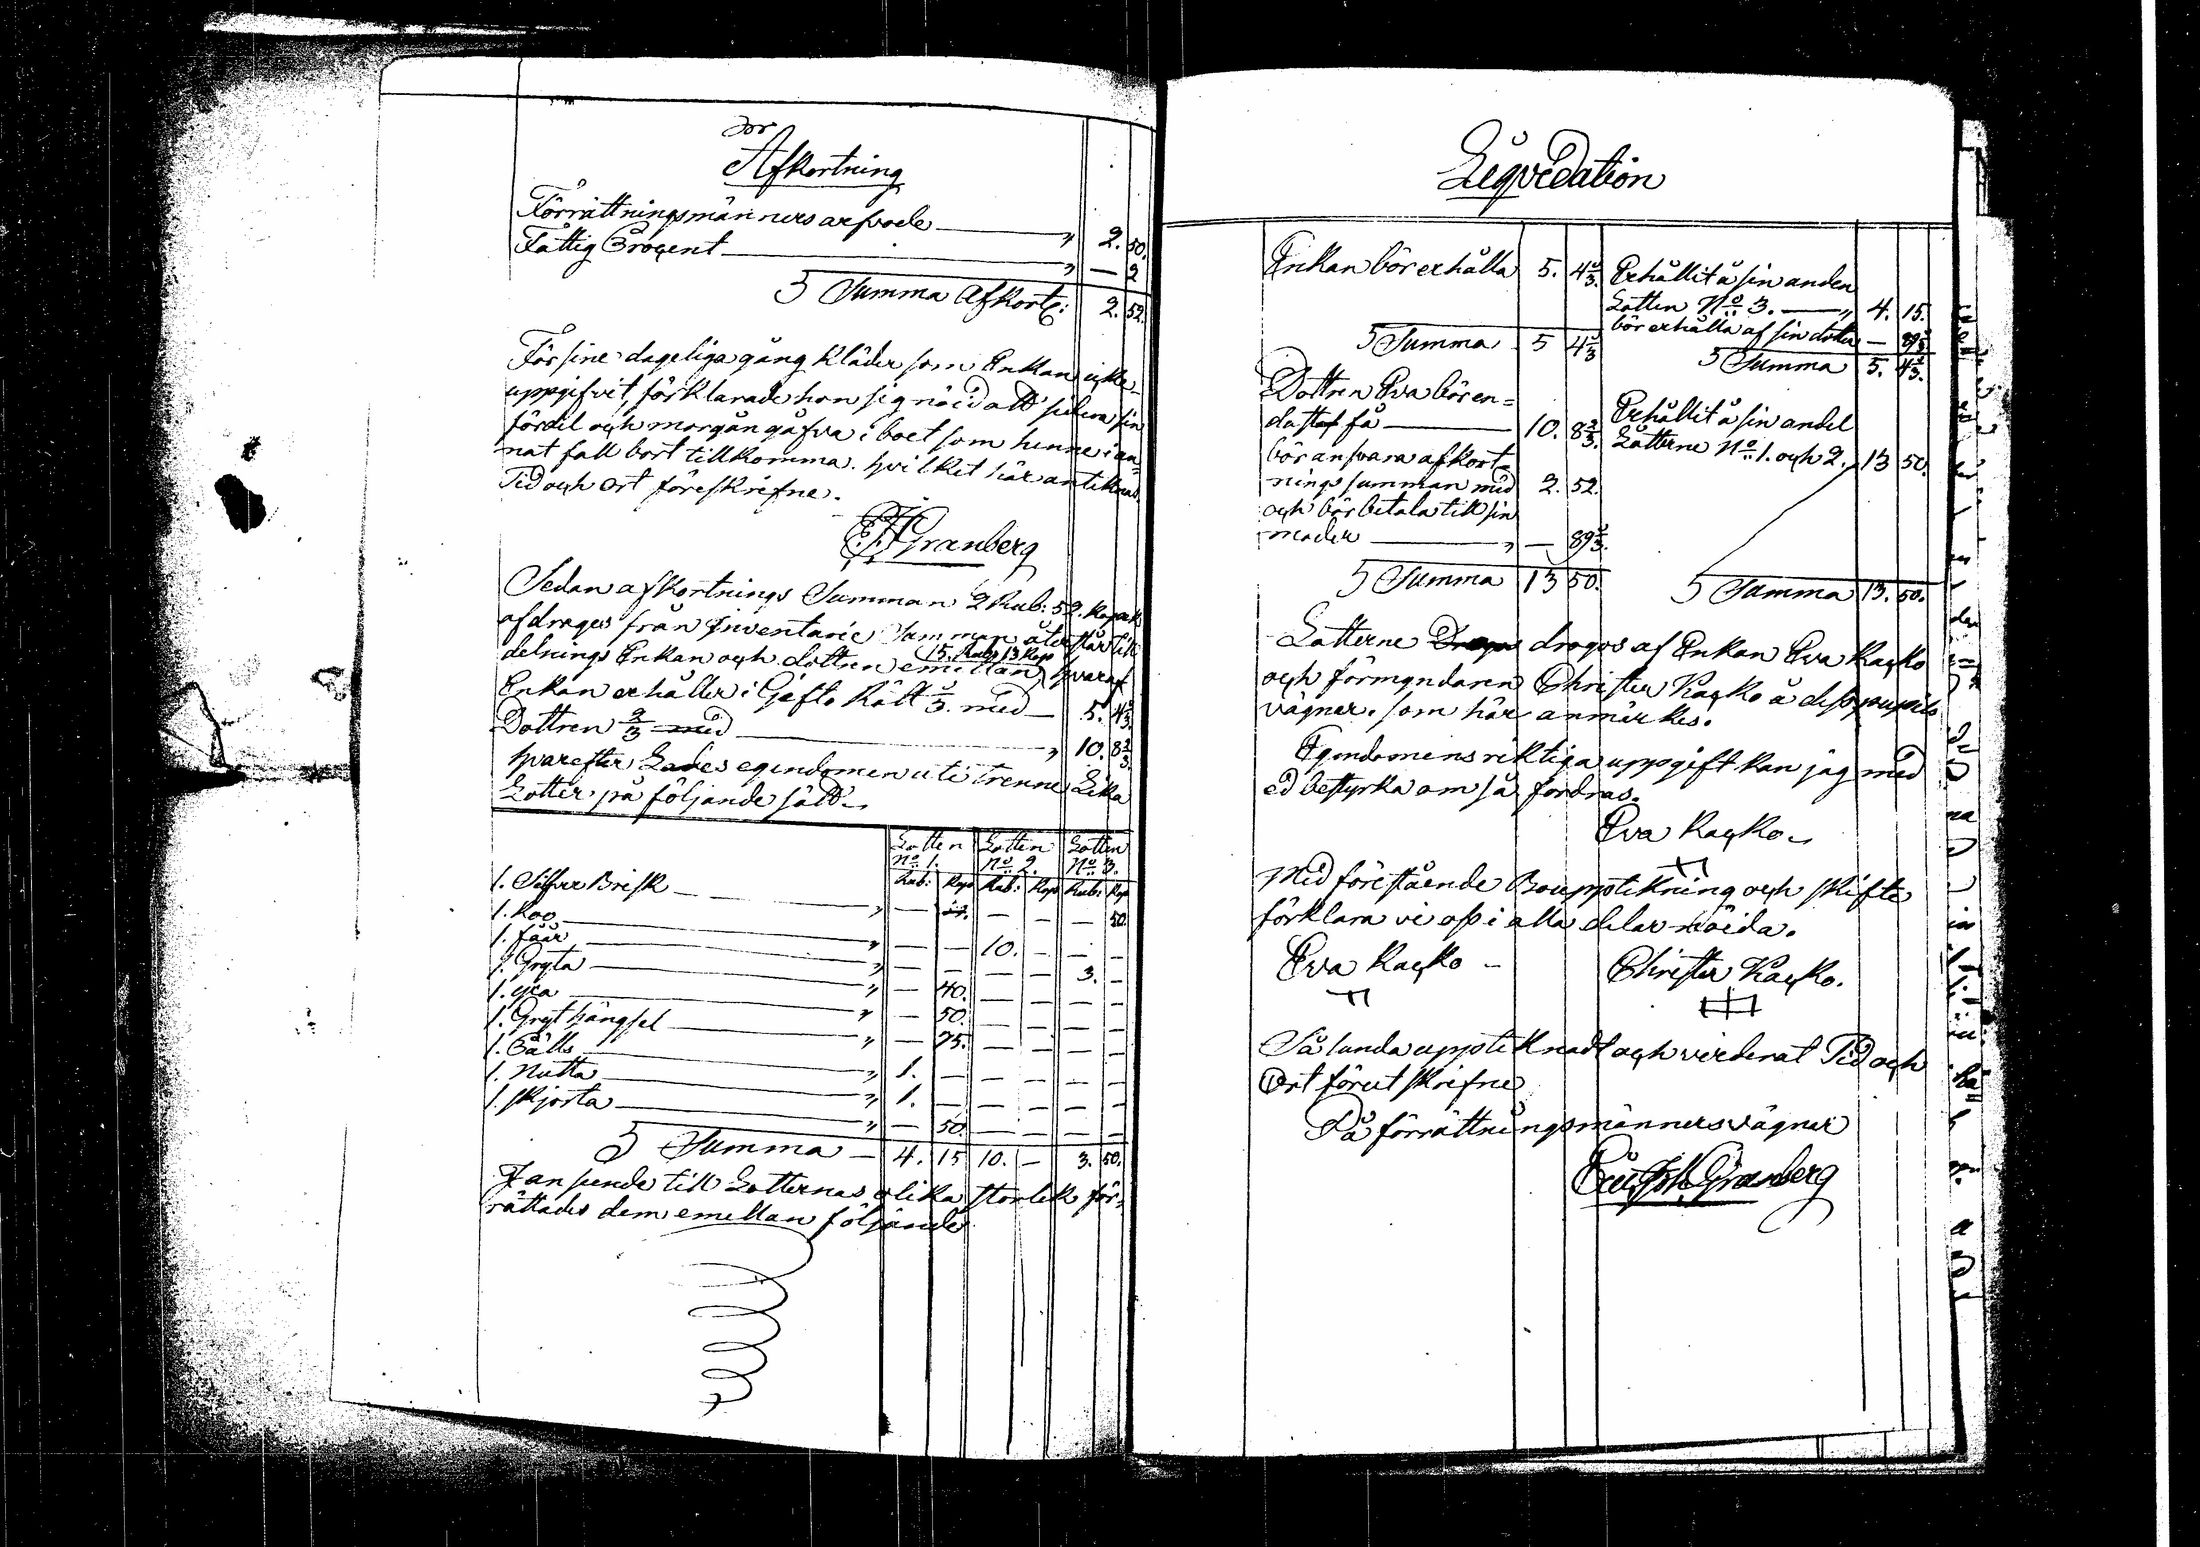 Afkortning
Förrättningsmänners arfvode — " 2. 50.
Fattig Procent — " — 2
Summa Afkortn: 2. 52.
För sine dageliga gång kläder som Enkan icke
uppgifvit, förklarade hon sig nöid att sidera sin
fördel och morgångåfva i boet som henne i an=
nat fall bort tillkomma. hvilket här antiknas
Tid och ort föreskrifne.
Granberg
Sedan afkortnings Summan 2 Rub: 52. kopek
afdrages från Inventarie Summan återstår till
15. Rub 13 Kop
delnings Enkan och dottren emellan, hvaraf
Enkan erhåller i Gifto Rätt 1/3. med — 5. 4 1/3
Dottren 2/3 med — " 10. 8 2/3
hvarefter Lades egendomen uti trenne Lika
Lotter på följande sätt.
Lotten Lotten Lotten
No 1. No 2. No 3.
Rub: Kop Rub: Kop Rub: Kop
1. Silfver Brisk — " — — — — 50.
1. Koo — " — — 10. — — —
1. fåår — " — — — — 3. —
1. Gryta — " — 40. — — — —
1. yxa — " — 50. — — — —
1. Gryt hängsel — " — 75. — — — —
1. Pälts — " 1. — — — — —
1. Nutta — " 1. — — — — —
1. Skjorta — " — 50. — — — —
Summa — 4. 15 10. — 3. 50.
I anseende till Lotternas olika storlek för=
rättades dem emellan följande
Liqvidation
Enkan bör erhålla 5. 4 1/3.
Summa 5 4 1/3
Dottren Eva bör en=
dast få — 10. 8 2/3.
bör ansvara afkort=
nings summan med 2. 52.
och bör betala till sin
moder — " — 89 1/3.
Summa 13 50.
Erhållit å sin andel
Lotten No 3. — " 4. 15.
bör erhålla af sin dotter — 89 1/3
Summa 5. 4 1/3.
Erhållit å sin andel
Lotterne No 1. och 2. 13 50.
Summa 13. 50.
Lotterne drogos af Enkan Eva Kacko
och förmyndaren Christer Kacko å dess pupils
vägnar. som här anmärkes.
Egendomens riktiga uppgift kan jag med
ed bestyrka om så fordras.
Eva Kacko.
Med förestående Bouppteckning och skifte
förklara vi oss i alla delar nöida.
Eva Kacko — Christer Kacko.
Så lunda upptiknadt och virderat Tid och
Ort förut skrifne
På förrättningsmänners vägnar
Eric Joh. Granberg